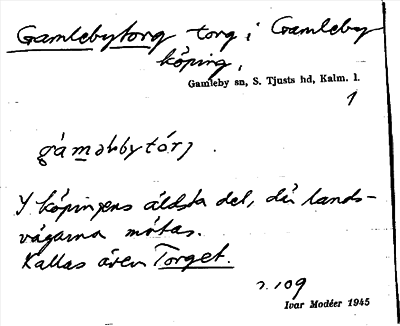 Gamlebytorg torg i Gamleby
köping,
Gamleby sn, S. Tjusts hd, Kalm. l.
1
gáməbbytórj.
I köpingens äldsta del, där lands-
vägarna mötas.
Kallas även Torget.
s. 109
Ivar Modéer 1945